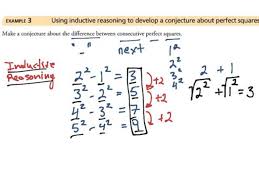 EXAMPLE 3 Using inductive reasoning to develop a conjecture about perfect squares
Make a conjecture about the difference between consecutive perfect squares.
"-" next 1²
Inductive Reasoning
2² - 1² = 3
3² - 2² = 5
4² - 3² = 7
5² - 4² = 9
+2
+2
+2
2²
3²
4²
2 + 1
√2² + √1² = 3